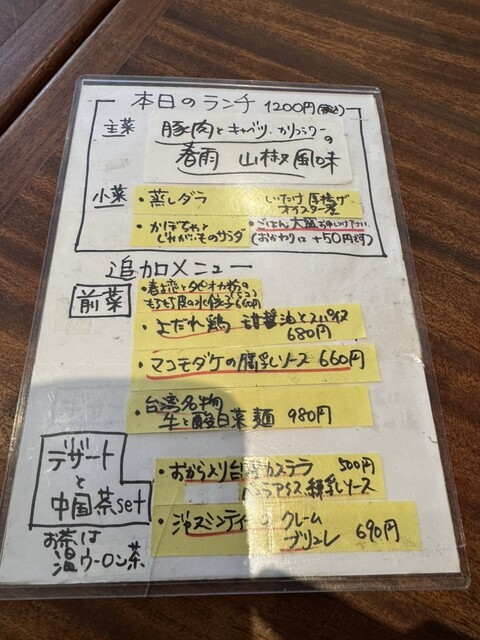 本日のランチ 1200円(税込)
主菜
豚肉とキャベツ、カリフラワーの
春雨 山椒風味
小菜
・蒸しダラ
しいたけ 厚揚げ
オイスター煮
・かぼちゃと
じゃがいものサラダ
・ごはん大盛お申しつけ下さい
(おかわりは+50円です)
追加メニュー
前菜
・春よ恋とタピオカ粉の
もちもち皮の水餃子 660円
・よだれ鶏 甜醤油とスパイス
680円
・マコモダケの腐乳ソース 660円
・台湾名物
牛と酸白菜麺 980円
デザート
と
中国茶set
お茶は
温ウーロン茶
・おからより台湾カステラ 500円
バニラアイス 練乳ソース
・ジャスミンティーの クレーム
ブリュレ 690円